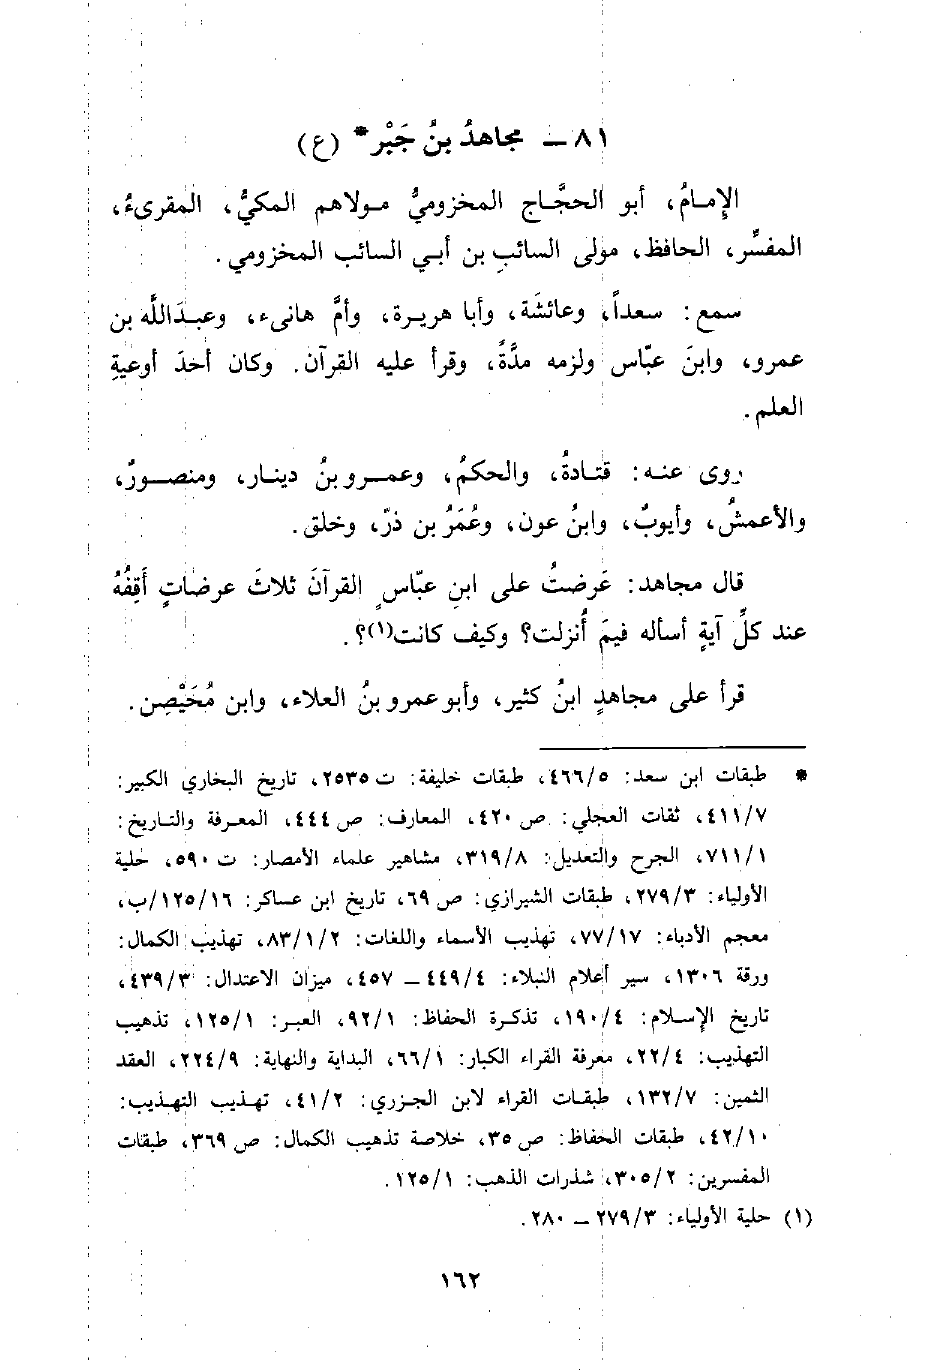 ٨١ ـ مجاهدُ بنُ جَبْر* (ع)
الإِمـامُ، أبو الحجَّـاج المخزوميُّ مـولاهم المكيُّ، المقرىءُ،
المفسِّر، الحافظ، مولى السائبِ بن أبـي السائب المخزومي.
سمع: سعداً، وعائشَة، وأبا هريـرة، وأمَّ هانىء، وعبـدَاللَّه بن
عمرو، وابنَ عبّاس ولزمه مدَّةً، وقرأ عليه القرآن. وكان أحدَ أوعيةِ
العلم.
روى عنـه: قتـادةُ، والحكمُ، وعمـرو بنُ دينـار، ومنصـورٌ،
والأعمشُ، وأيوبُ، وابنُ عون، وعُمَرُ بن ذرّ، وخلق.
قال مجاهد: عَرضتُ على ابنِ عبّاسٍ القرآنَ ثلاثَ عرضاتٍ أَقِفُهُ
عند كلِّ آيةٍ أسأله فيمَ أُنزلت؟ وكيف كانت(١)؟.
قرأ على مجاهدٍ ابنُ كثير، وأبو عمرو بنُ العلاء، وابن مُحَيْصِن.
* طبقات ابن سعد: ٤٦٦/٥، طبقات خليفة: ت ٢٥٣٥، تاريخ البخاري الكبير:
٤١١/٧، ثقات العجلي: ص ٤٢٠، المعارف: ص ٤٤٤، المعـرفة والتـاريخ:
٧١١/١، الجرح والتعديل: ٣١٩/٨، مشاهير علماء الأمصار: ت ٥٩٠، حلية
الأولياء: ٢٧٩/٣، طبقات الشيرازي: ص ٦٩، تاريخ ابن عساكر: ١٢٥/١٦/ب،
معجم الأدباء: ٧٧/١٧، تهذيب الأسماء واللغات: ٨٣/١/٢، تهذيب الكمال:
ورقة ١٣٠٦، سير أعلام النبلاء: ٤٤٩/٤ ـ ٤٥٧، ميزان الاعتدال: ٤٣٩/٣،
تاريخ الإسـلام: ١٩٠/٤، تذكـرة الحفاظ: ٩٢/١، العبـر: ١٢٥/١، تذهيب
التهذيب: ٢٢/٤، معرفة القراء الكبار: ٦٦/١، البداية والنهاية: ٢٢٤/٩، العقد
الثمين: ١٣٢/٧، طبقـات القراء لابن الجـزري: ٤١/٢، تهـذيب التهـذيب:
٤٢/١٠، طبقات الحفاظ: ص ٣٥، خلاصة تذهيب الكمال: ص ٣٦٩، طبقات
المفسرين: ٣٠٥/٢، شذرات الذهب: ١٢٥/١.
(١) حلية الأولياء: ٢٧٩/٣ ـ ٢٨٠.
١٦٢